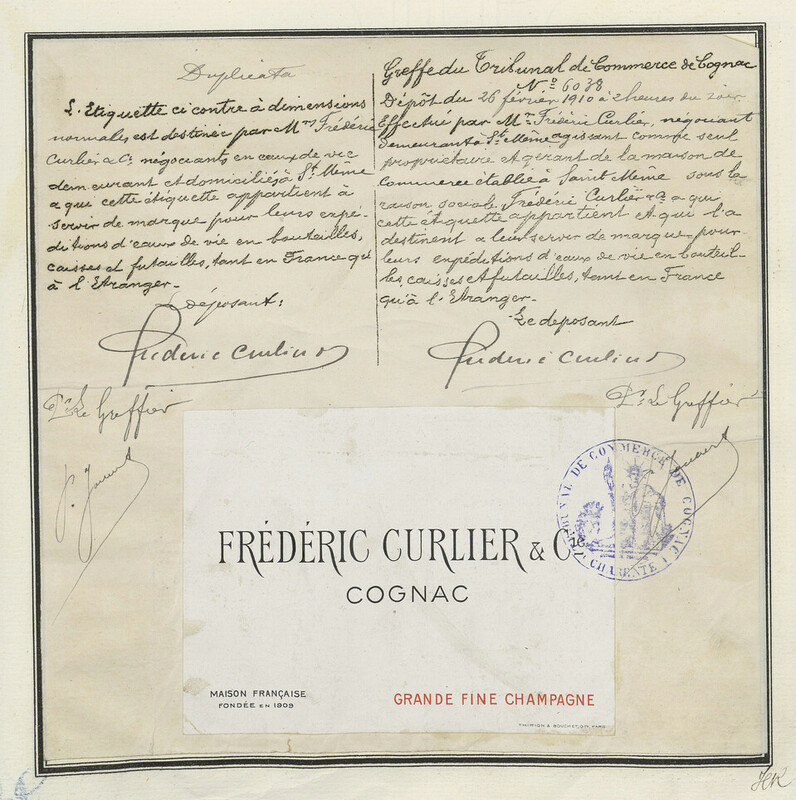 Duplicata
L'Etiquette ci contre à dimensions
normales est destinée par Mrs Frédéric
Curlier & Co négociants en eaux de vie
demeurant et domiciliés à St Même
a qui cette étiquette appartient à
servir de marque pour leurs expé-
ditions d'eaux de vie en bouteilles,
caisses et futailles, tant en France qu'
à l'Etranger.
Le déposant:
Frédéric Curlier
Pr Le Greffier
Greffe du Tribunal de Commerce de Cognac
No 6038
Dépôt du 26 février 1910 à 2 heures du soir
Effectué par Mr Frédéric Curlier, négociant
demeurant à St Même agissant comme seul
propriétaire et gérant de la maison de
commerce établie à Saint Même sous la
raison sociale Frédéric Curlier & Co a qui
cette étiquette appartient et qui l'a
destinent a leur servir de marque pour
leurs expéditions d'eaux de vie en bouteil-
les, caisses et futailles, tant en France
qu'à l'Etranger.
Le deposant
Frédéric Curlier
Pr Le Greffier
TRIBUNAL DE COMMERCE DE COGNAC
CHARENTE
FRÉDÉRIC CURLIER & Cie
COGNAC
MAISON FRANÇAISE
FONDÉE EN 1909
GRANDE FINE CHAMPAGNE
HK